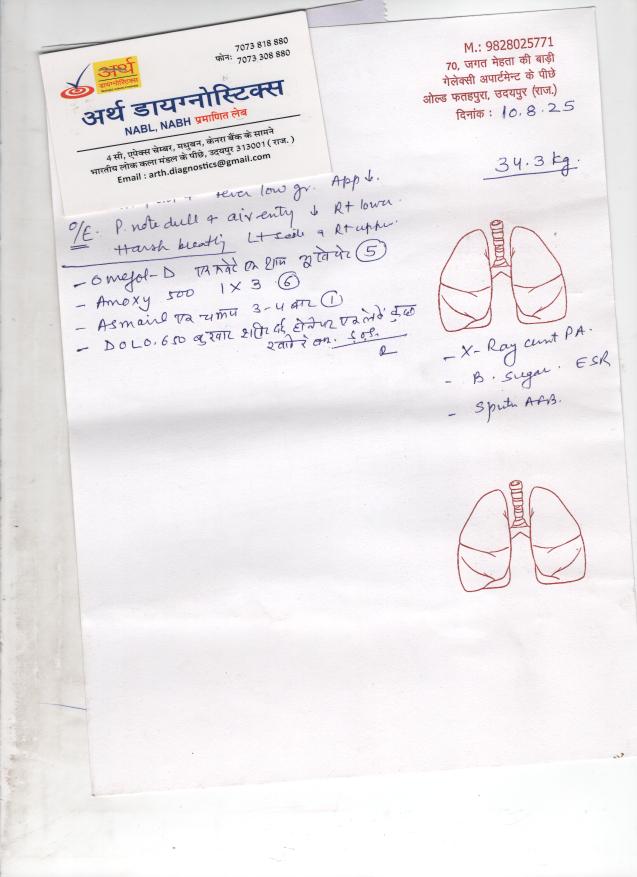 7073 818 880
फोन: 7073 308 880
अर्थ
डायग्नोस्टिक्स
अर्थ डायग्नोस्टिक्स
NABL, NABH प्रमाणित लेब
4 सी, एपेक्स चेम्बर, मधुबन, केनरा बैंक के सामने
भारतीय लोक कला मंडल के पीछे, उदयपुर 313001 ( राज. )
Email : arth.diagnostics@gmail.com
M.: 9828025771
70, जगत मेहता की बाड़ी
गेलेक्सी अपार्टमेन्ट के पीछे
ओल्ड फतहपुरा, उदयपुर (राज.)
दिनांक : 10.8.25
34.3 kg.
fever low gr. App ↓.
O/E. P. note dull & air entry ↓ Rt lower
Harsh breath Lt side & Rt upper
- Omefol-D 5
- Amoxy 500 1 X 3 6
- 3-4 बार 1
- DOLO.650 बुखार
S.O.S.
- X-Ray chest PA.
- B. Sugar. ESR
- Sputm AFB.